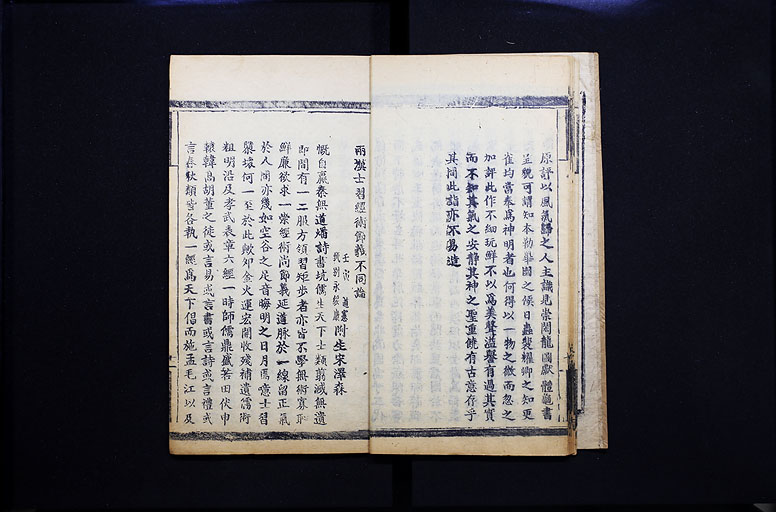 原評以風氣歸之人主識見崇閎龍圖獻體龜書
呈貌可謂知本勒畢國之候日蟲襲耀卿之知更
雀均當奉為神明者也何得以一物之微而忽之
加評此作不細玩鮮不以為美聲溢譽有過其實
而不知其氣之安靜其神之聖重饒有古意存乎
其間此詣亦不易造
兩漢士習經術節義不同論
壬寅 道憲
我劉永緞康 附生宋澤森
慨自嬴秦無道燔詩書坑儒生天下士類翦滅無遺
即間有一二服方領習矩步者亦皆不學無術寡恥
鮮廉欲求一崇經術尚節義延道脈於一線留正氣
於人間亦幾如空谷之足音晦明之日月焉噫士習
隳壞何一至於此歟卯金火運宏開收殘補遺儒術
粗明沿及孝武表章六經一時師儒鼎盛若田伏申
轅韓高胡董之徒或言易或言書或言詩或言禮或
言春秋類皆各執一經為天下倡而施孟毛江以及